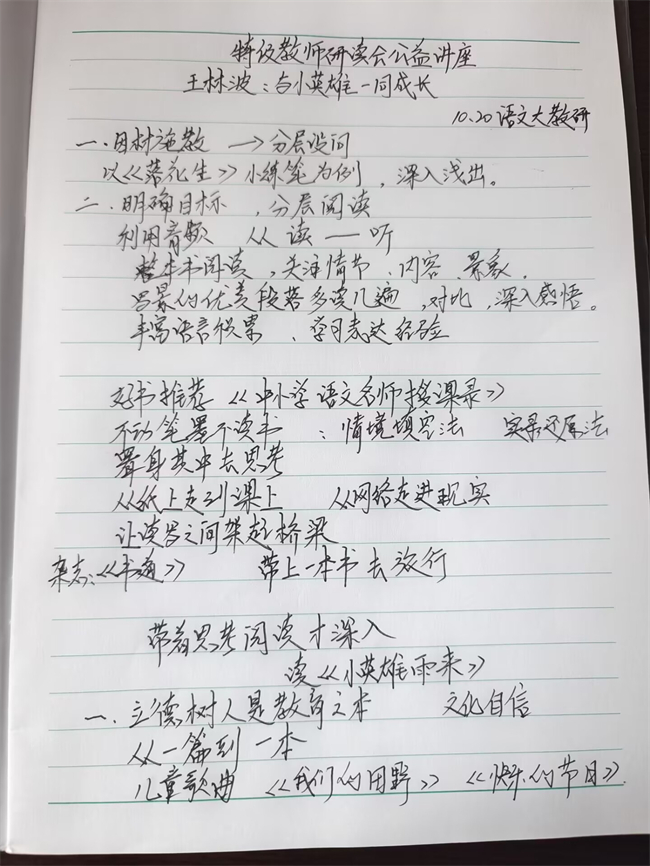 特级教师研读会公益讲座
王林波：与小英雄一同成长
10.20 语文大教研
一、因材施教 → 分层设问
以《落花生》小练笔为例，深入浅出。
二、明确目标，分层阅读
利用音频 从读—听
整本书阅读，关注情节、内容、景象，
写景的优美段落多读几遍，对比，深入感悟。
丰富语言积累、学习表达经验
好书推荐《中小学语文名师授课录》
不动笔墨不读书：情境填空法 实录还原法
置身其中去思考
从纸上走到课上 从网络走进现实
让读写之间架起桥梁
杂志：《书海》 带上一本书去旅行
带着思考阅读才深入
读《小英雄雨来》
一、立德树人是教育之本 文化自信
从一篇到一本
儿童歌曲《我们的田野》《快乐的节日》.